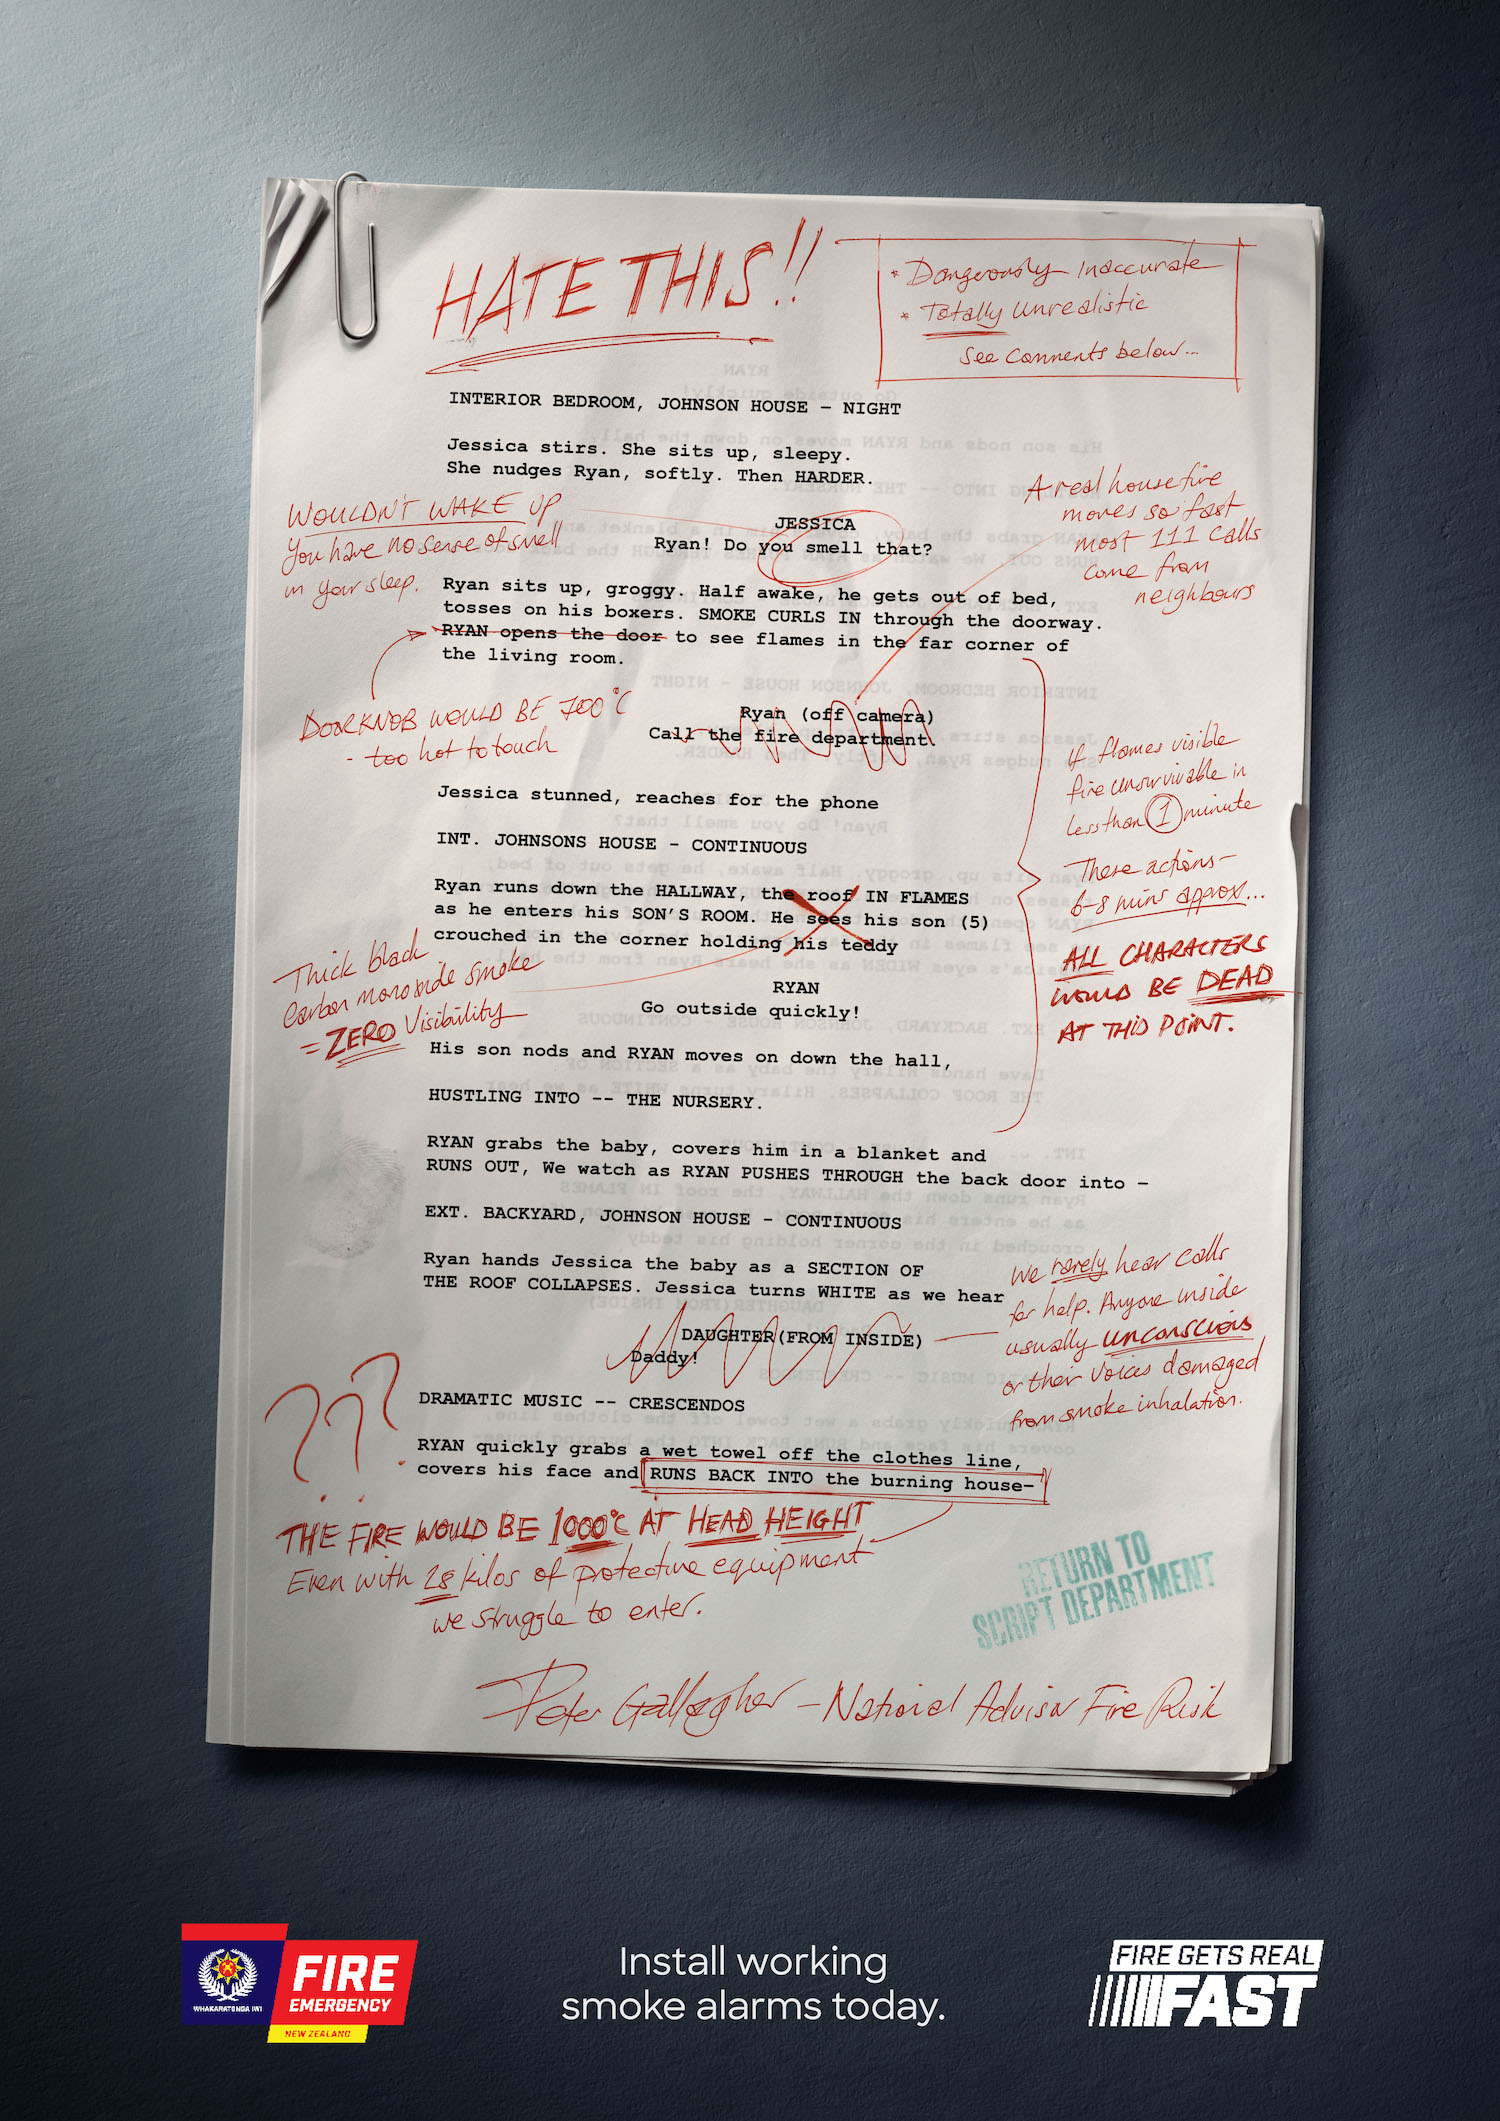 HATE THIS!!
* Dangerously Inaccurate
* Totally Unrealistic
See comments below...
INTERIOR BEDROOM, JOHNSON HOUSE – NIGHT
Jessica stirs. She sits up, sleepy.
She nudges Ryan, softly. Then HARDER.
WOULDN'T WAKE UP
You have no sense of smell
in your sleep.
JESSICA
Ryan! Do you smell that?
A real house fire
moves so fast
most 111 calls
come from
neighbours
Ryan sits up, groggy. Half awake, he gets out of bed,
tosses on his boxers. SMOKE CURLS IN through the doorway.
RYAN opens the door to see flames in the far corner of
the living room.
DOORKNOB WOULD BE 700°C
- too hot to touch
Ryan (off camera)
Call the fire department.
If flames visible
fire unsurvivable in
less than 1 minute
These actions –
6-8 mins approx...
ALL CHARACTERS
WOULD BE DEAD
AT THIS POINT.
Jessica stunned, reaches for the phone
INT. JOHNSONS HOUSE - CONTINUOUS
Ryan runs down the HALLWAY, the roof IN FLAMES
as he enters his SON'S ROOM. He sees his son (5)
crouched in the corner holding his teddy
Thick black
Carbon monoxide smoke
= ZERO Visibility
RYAN
Go outside quickly!
His son nods and RYAN moves on down the hall,
HUSTLING INTO -- THE NURSERY.
RYAN grabs the baby, covers him in a blanket and
RUNS OUT, We watch as RYAN PUSHES THROUGH the back door into –
EXT. BACKYARD, JOHNSON HOUSE - CONTINUOUS
Ryan hands Jessica the baby as a SECTION OF
THE ROOF COLLAPSES. Jessica turns WHITE as we hear
We rarely hear calls
for help. Anyone inside
usually unconscious
or their voices damaged
from smoke inhalation.
DAUGHTER(FROM INSIDE)
Daddy!
DRAMATIC MUSIC -- CRESCENDOS
???
RYAN quickly grabs a wet towel off the clothes line,
covers his face and RUNS BACK INTO the burning house–
THE FIRE WOULD BE 1000°C AT HEAD HEIGHT
Even with 28 kilos of protective equipment
we struggle to enter.
RETURN TO
SCRIPT DEPARTMENT
Peter Gallagher – National Advisor Fire Risk
WHAKARATONGA IWI
FIRE
EMERGENCY
NEW ZEALAND
Install working
smoke alarms today.
FIRE GETS REAL
FAST